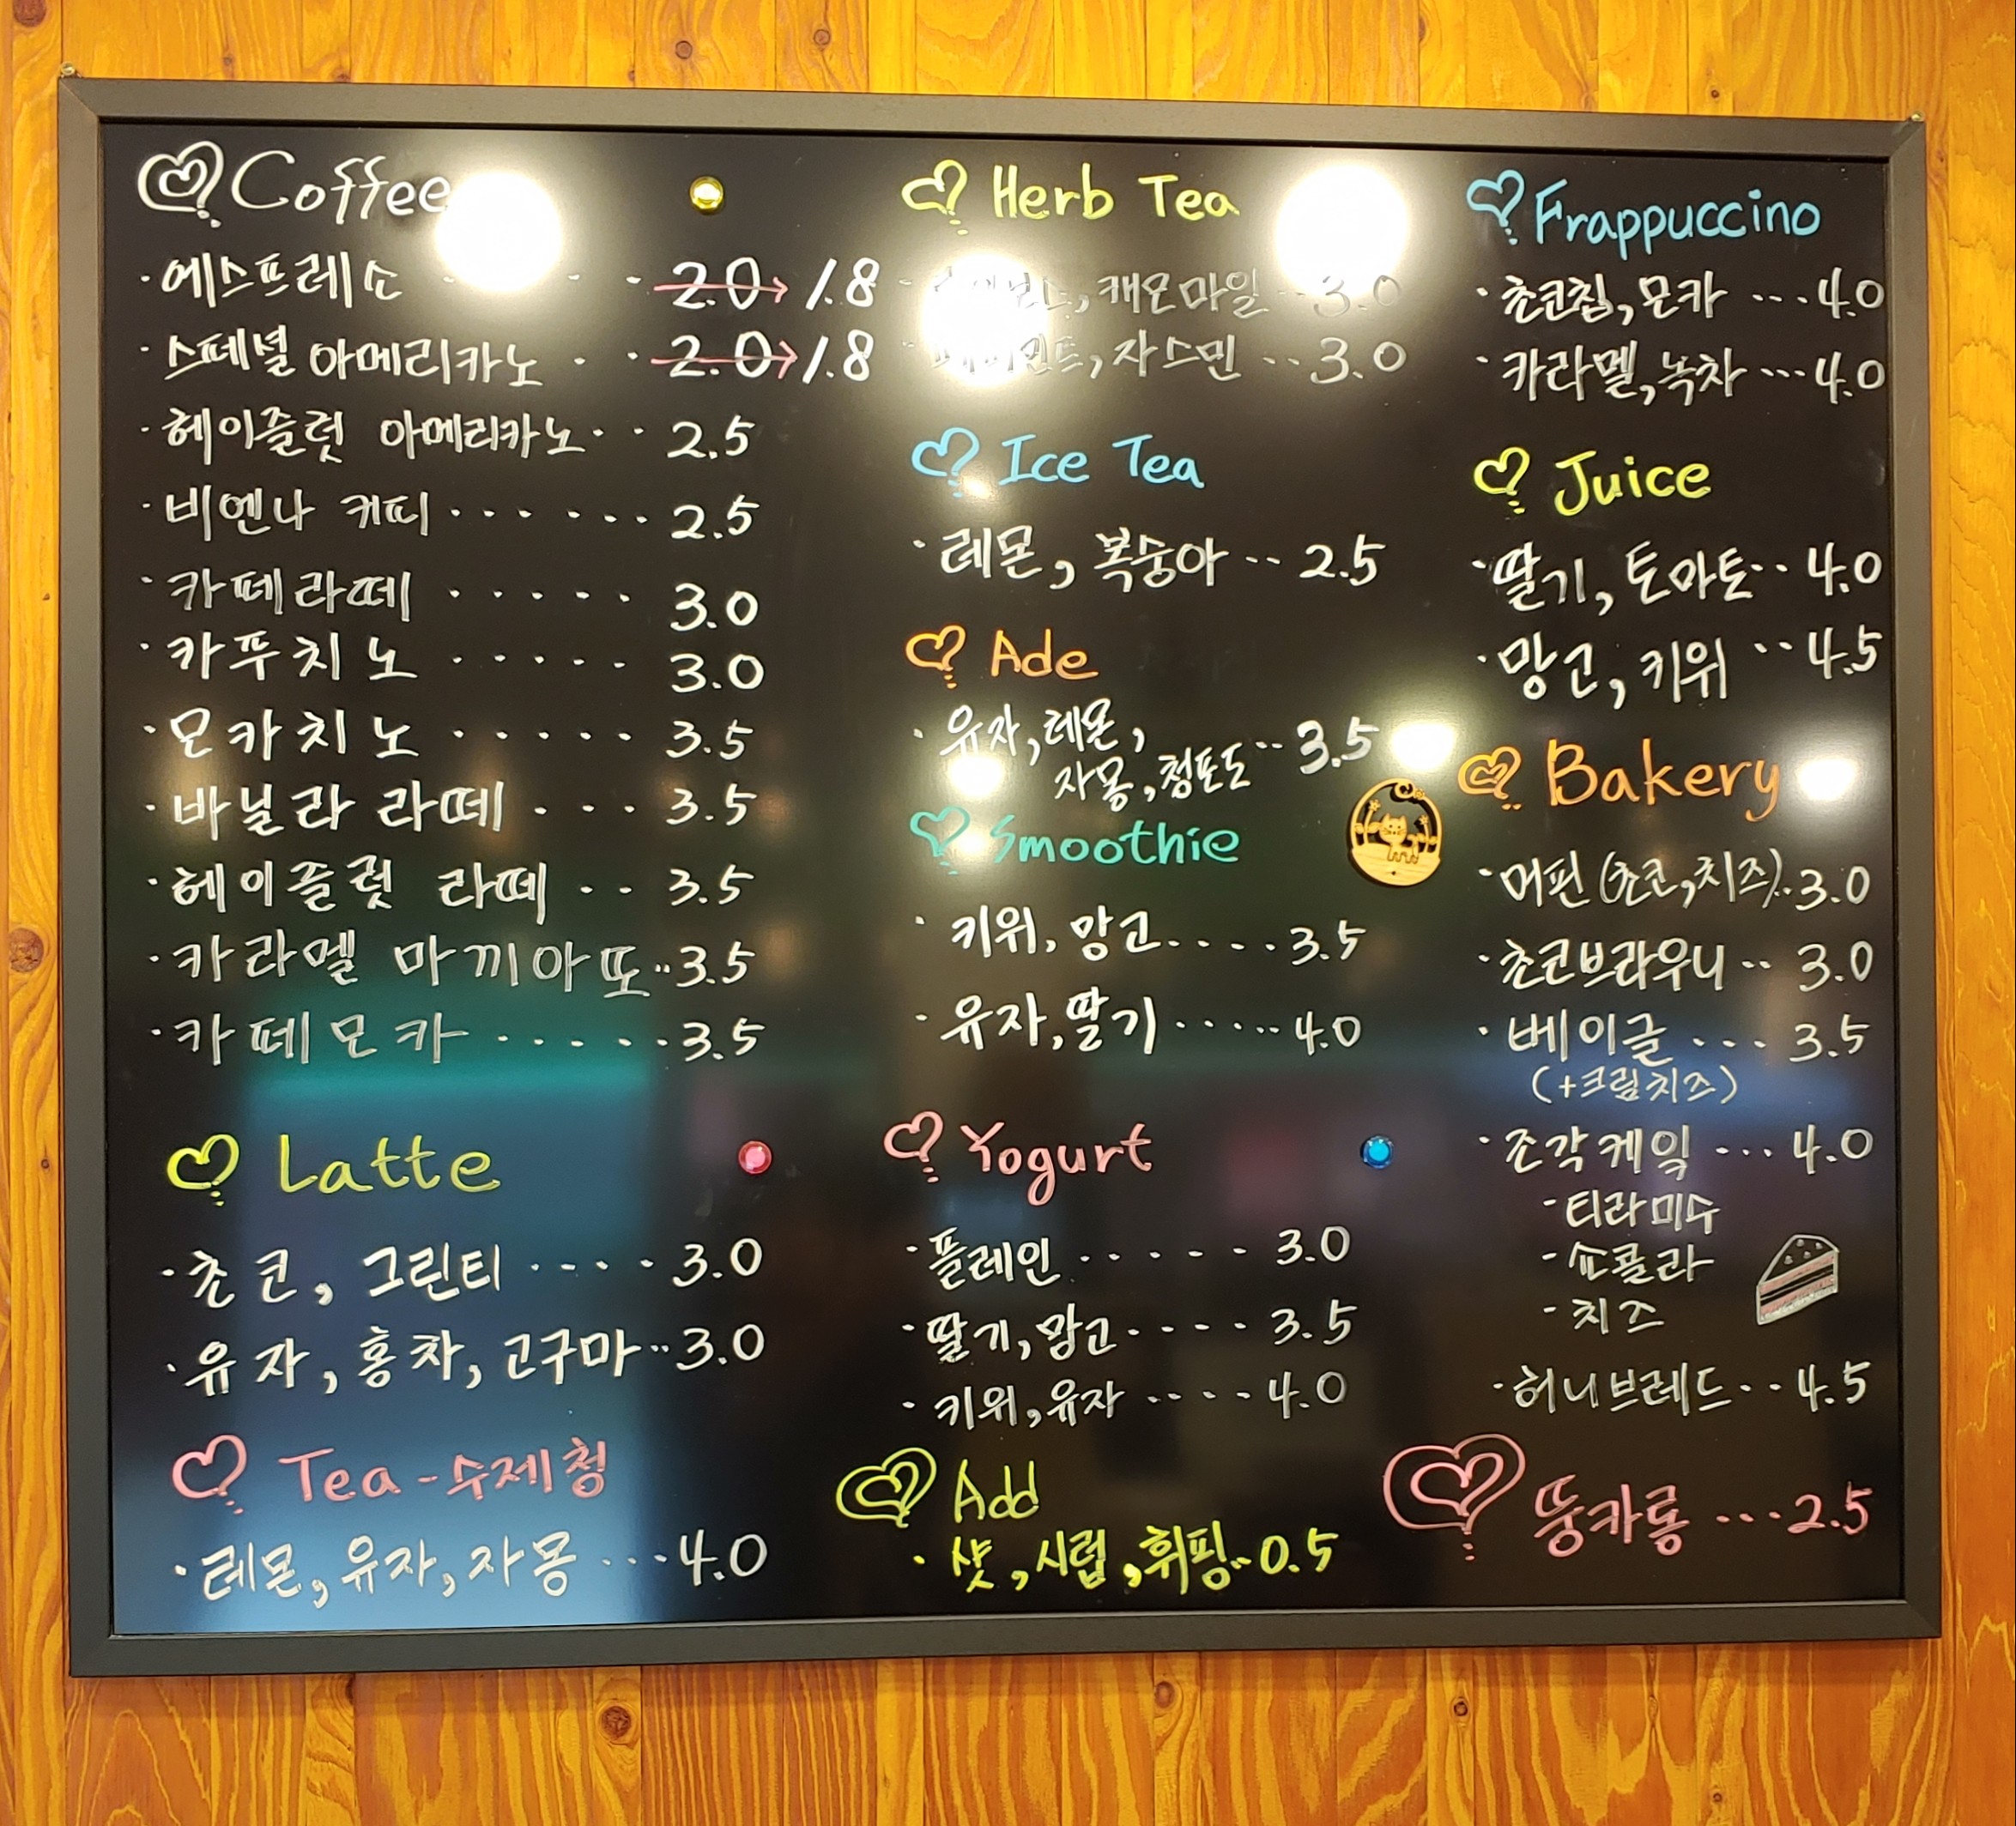 Coffee
·에스프레소 · · · 2.0→1.8
·스페셜 아메리카노 · · 2.0→1.8
·헤이즐럿 아메리카노·· 2.5
·비엔나 커피······ 2.5
·카페라떼 ····· 3.0
·카푸치노 ····· 3.0
·모카치노 ····· 3.5
·바닐라 라떼 ··· 3.5
·헤이즐럿 라떼 ·· 3.5
·카라멜 마끼아또··3.5
·카페모카 ·····3.5
Latte
·초코, 그린티 ···· 3.0
·유자, 홍차, 고구마··3.0
Tea-수제청
·레몬, 유자, 자몽 ···4.0
Herb Tea
캐모마일 ··3.0
자스민 ··3.0
Ice Tea
·레몬, 복숭아 ·· 2.5
Ade
·유자, 레몬,
자몽, 청포도·· 3.5
Smoothie
·키위, 망고.... 3.5
·유자, 딸기 ····· 4.0
Yogurt
·플레인 ····· 3.0
·딸기, 망고···· 3.5
·키위, 유자 ···· 4.0
Add
·샷, 시럽, 휘핑..0.5
Frappuccino
·초코칩, 모카 ···4.0
·카라멜, 녹차 ···4.0
Juice
·딸기, 토마토·· 4.0
·망고, 키위 ·· 4.5
Bakery
·머핀(초코, 치즈)..3.0
·초코브라우니·· 3.0
·베이글 ··· 3.5
(+크림치즈)
·조각케잌 ··· 4.0
-티라미수
-쇼콜라
-치즈
·허니브레드·· 4.5
뚱카롱 ···2.5